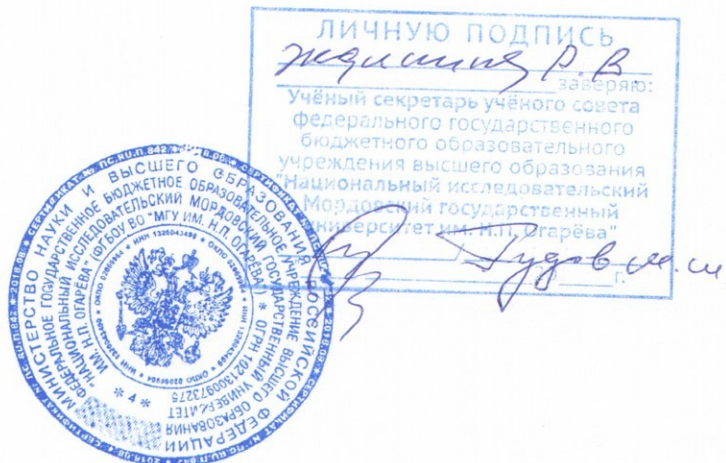 ЛИЧНУЮ ПОДПИСЬ
Р. В.
заверяю:
Учёный секретарь учёного совета
федерального государственного
бюджетного образовательного
учреждения высшего образования
"Национальный исследовательский
Мордовский государственный
университет им. Н.П. Огарёва"
г.
МИНИСТЕРСТВО НАУКИ И ВЫСШЕГО ОБРАЗОВАНИЯ РОССИЙСКОЙ ФЕДЕРАЦИИ
ФЕДЕРАЛЬНОЕ ГОСУДАРСТВЕННОЕ БЮДЖЕТНОЕ ОБРАЗОВАТЕЛЬНОЕ УЧРЕЖДЕНИЕ ВЫСШЕГО ОБРАЗОВАНИЯ
"НАЦИОНАЛЬНЫЙ ИССЛЕДОВАТЕЛЬСКИЙ МОРДОВСКИЙ ГОСУДАРСТВЕННЫЙ УНИВЕРСИТЕТ
ИМ. Н.П. ОГАРЁВА" (ФГБОУ ВО "МГУ ИМ. Н.П. ОГАРЁВА") * ОГРН 1021300973275
* 4 *